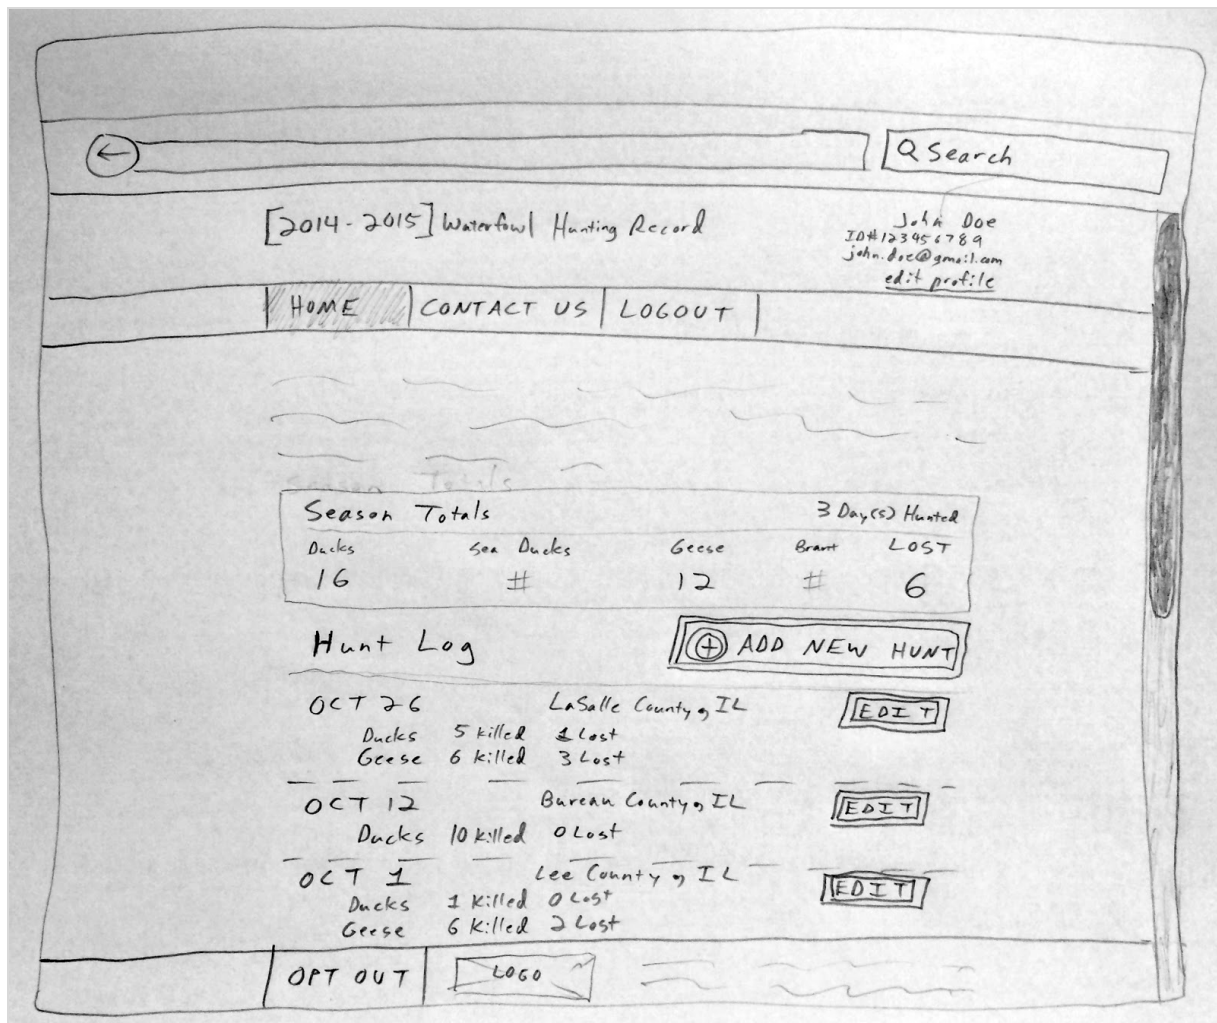 Search
[2014-2015] Waterfowl Hunting Record
John Doe
ID#123456789
john.doe@gmail.com
edit profile
HOME CONTACT US LOGOUT
Season Totals
Season Totals 3 Day(s) Hunted
Ducks Sea Ducks Geese Brant LOST
16 # 12 # 6
Hunt Log + ADD NEW HUNT
OCT 26 LaSalle County, IL EDIT
Ducks 5 killed 1 Lost
Geese 6 killed 3 Lost
OCT 12 Bureau County, IL EDIT
Ducks 10 killed 0 Lost
OCT 1 Lee County, IL EDIT
Ducks 1 killed 0 Lost
Geese 6 killed 2 Lost
OPT OUT LOGO